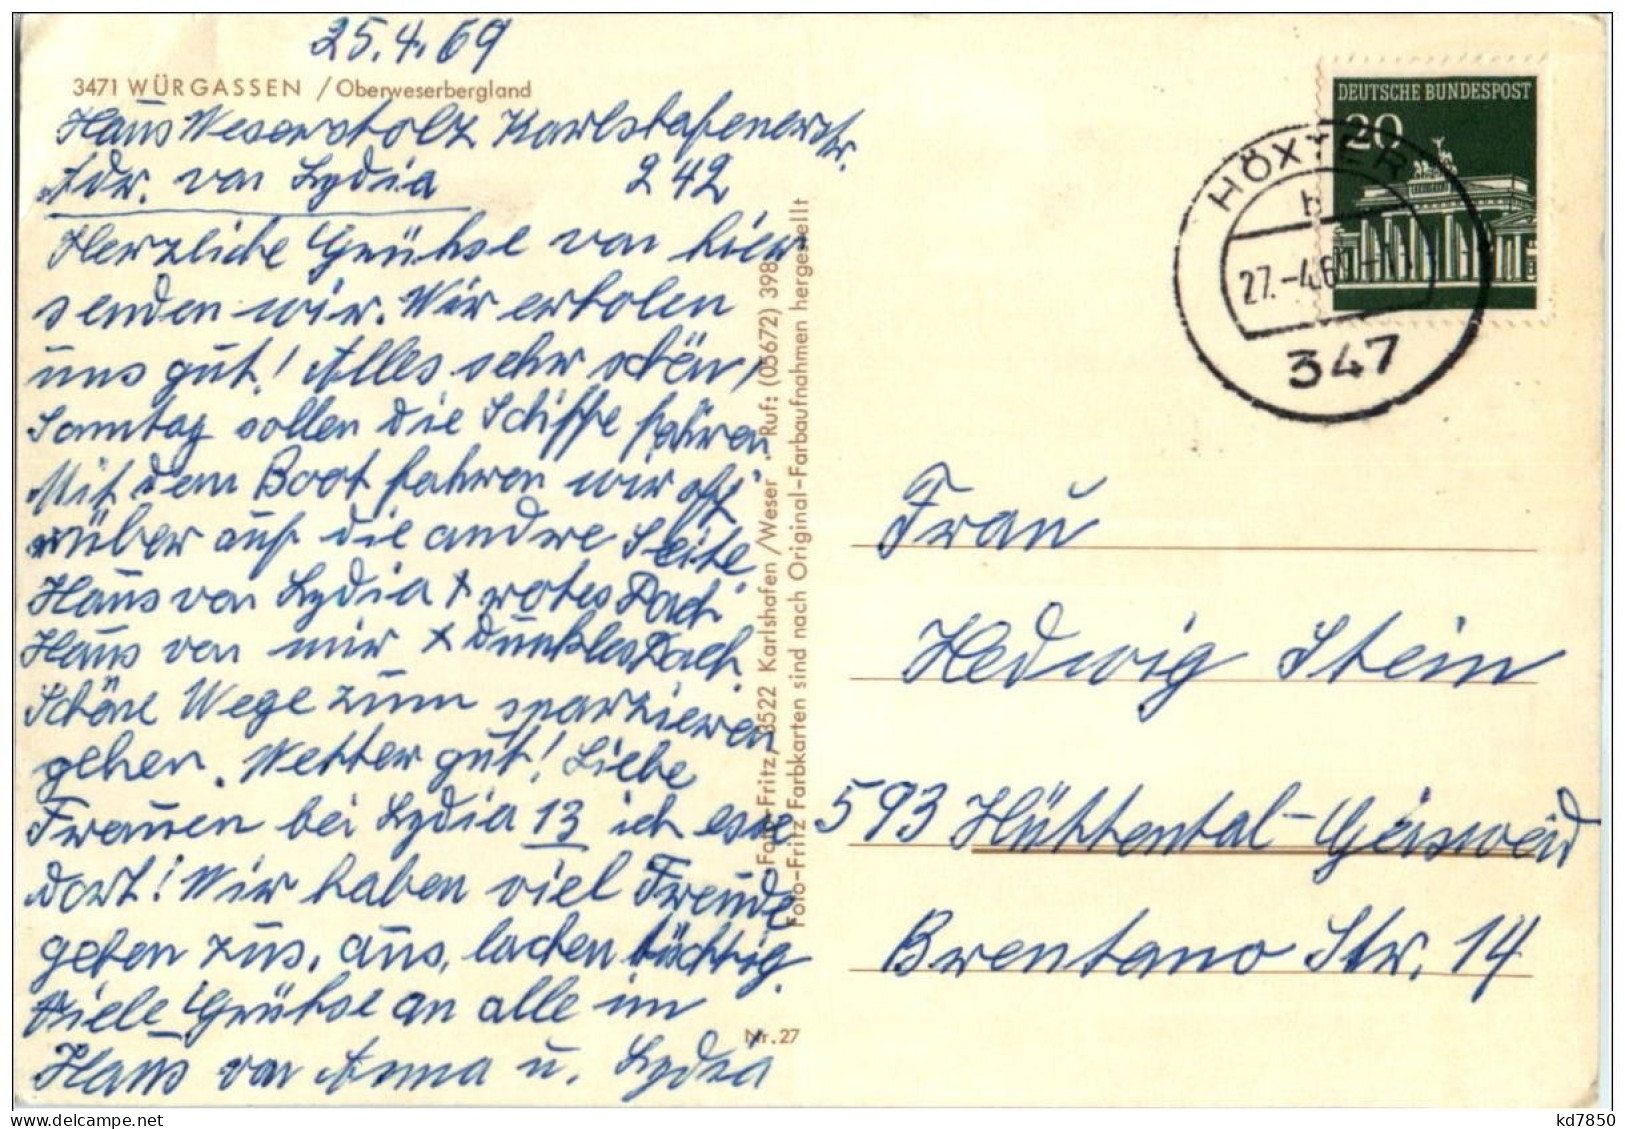 25.4.69
3471 WÜRGASSEN / Oberweserbergland
Haus Weserstolz Karlshafenerstr.
Adr. von Lydia 242
Herzliche Grühse von hier
senden wir. Wir erholen
uns gut! Alles sehr schön,
Sonntag sollen die Schiffe fahren
Mit dem Boot fahren wir oft
rüber auf die andre Seite
Haus von Lydia x rotes Dach
Haus von mir x dunkles Dach.
Schöne Wege zum sparzieren
gehen. Wetter gut! Liebe
Frauen bei Lydia 13 ich esse
dort! Wir haben viel Freude
gehen zus. aus, lachen tüchtig.
Viele Grühse an alle im
Haus von Anna u. Lydia
Foto-Fritz, 3522 Karlshafen/Weser Ruf: (05672) 398
Foto-Fritz Farbkarten sind nach Original-Farbaufnahmen hergestellt
Nr. 27
DEUTSCHE BUNDESPOST
20
HÖXTER
b
27.-4.69
347
Frau
Hedwig Stein
593 Hüttental-Geisweid
Brentano Str. 14
kd7850